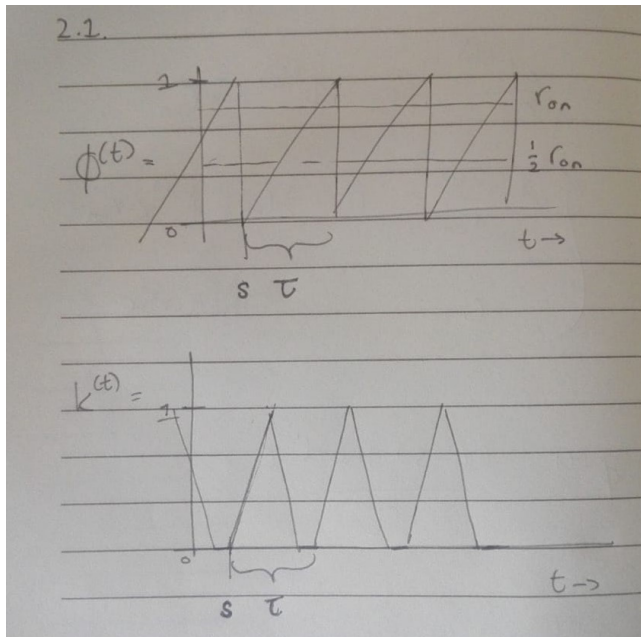 2.1.
1
r_on
ϕ(t) =
½ r_on
0
t →
s τ
k(t) =
1
0
t →
s τ